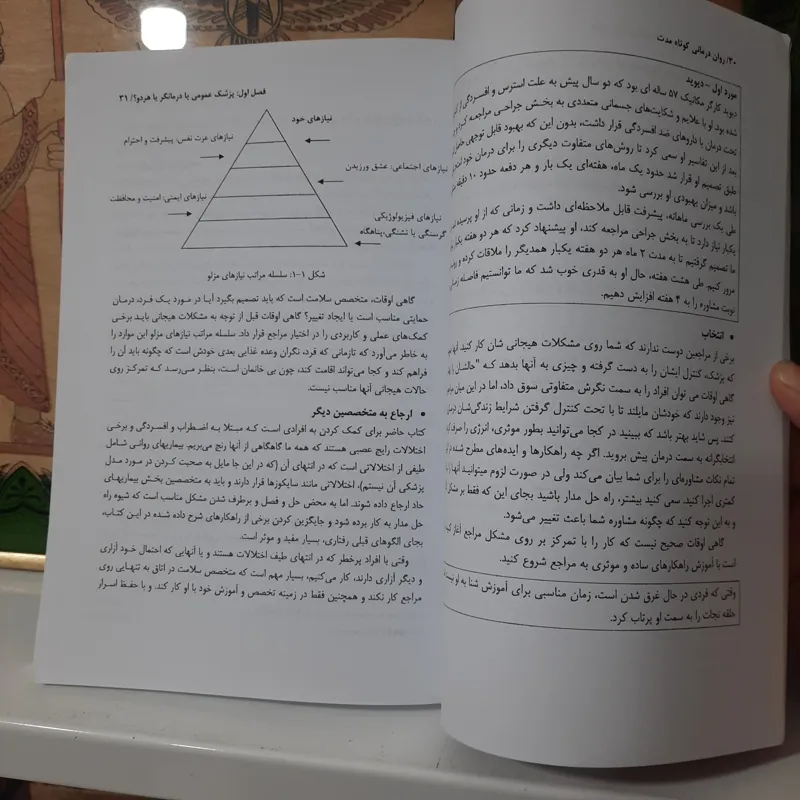 ۳۰/ روان درمانی کوتاه مدت
مورد اول – دیوید
دیوید کارگر مکانیک ۵۷ ساله ای بود که دو سال پیش به علت استرس و افسردگی از
شده بود. او با علایم و شکایت‌های جسمانی متعددی به بخش جراحی مراجعه کرد و
تحت درمان با داروهای ضد افسردگی قرار داشت، بدون این که بهبود قابل توجهی حاصل
بعد از این تفاسیر او سعی کرد تا روش‌های متفاوت دیگری را برای درمان خود
طبق تصمیم او قرار شد حدود یک ماه، هفته‌ای یک بار و هر دفعه حدود ۱۰ دقیقه
باشد و میزان بهبودی او بررسی شود.
طی یک بررسی ماهانه، پیشرفت قابل ملاحظه‌ای داشت و زمانی که از او پرسیده
یکبار نیاز دارد تا به بخش جراحی مراجعه کند، او پیشنهاد کرد که هر دو هفته یکبار
ما تصمیم گرفتیم تا به مدت ۲ ماه هر دو هفته یکبار همدیگر را ملاقات کرده و
مرور کنیم. طی هشت هفته، حال او به قدری خوب شد که ما توانستیم فاصله زمانی
نوبت مشاوره را به ۴ هفته افزایش دهیم.
• انتخاب
برخی از مراجعین دوست ندارند که شما روی مشکلات هیجانی شان کار کنید.
که پزشک، کنترل ایشان را به دست گرفته و چیزی به آنها بدهد که "حالشان را
گاهی اوقات می توان افراد را به سمت نگرش متفاوتی سوق داد، اما در این میان
نیز وجود دارند که خودشان مایلند تا با تحت کنترل گرفتن شرایط زندگی‌شان
کنند. پس شاید بهتر باشد که ببینید در کجا می‌توانید بطور موثری، انرژی را صرف
انتخابگرانه به سمت درمان پیش بروید. اگر چه راهکارها و ایده‌های مطرح شده در
تمام نکات مشاوره‌ای را برای شما بیان می‌کند ولی در صورت لزوم میتوانید آنها را
کمتری اجرا کنید. سعی کنید بیشتر، راه حل مدار باشید بجای این که فقط بر مشکل
و به این توجه کنید که چگونه مشاوره شما باعث تغییر می‌شود.
گاهی اوقات صحیح نیست که کار را با تمرکز بر روی مشکل مراجع آغاز
است با آموزش راهکارهای ساده و موثری به مراجع شروع کنید.
وقتی که فردی در حال غرق شدن است، زمان مناسبی برای آموزش شنا به او
حلقه نجات را به سمت او پرتاب کرد.
فصل اول: پزشک عمومی یا درمانگر یا هردو؟/ ۳۱
نیازهای خود
نیازهای عزت نفس: پیشرفت و احترام
نیازهای اجتماعی: عشق ورزیدن
نیازهای ایمنی: امنیت و محافظت
نیازهای فیزیولوژیکی:
گرسنگی یا تشنگی،پناهگاه
شکل ۱-۱: سلسله مراتب نیازهای مزلو
گاهی اوقات، متخصص سلامت است که باید تصمیم بگیرد آیا در مورد یک فرد، درمان
حمایتی مناسب است یا ایجاد تغییر؟ گاهی اوقات قبل از توجه به مشکلات هیجانی باید برخی
کمک‌های عملی و کاربردی را در اختیار مراجع قرار داد. سلسله مراتب نیازهای مزلو این موارد را
به خاطر می‌آورد که تازمانی که فرد، نگران وعده غذایی بعدی خودش است که چگونه باید آن را
فراهم کند و کجا می‌تواند اقامت کند، چون بی خانمان است، بنظر می‌رسد که تمرکز روی
حالات هیجانی آنها مناسب نیست.
• ارجاع به متخصصین دیگر
کتاب حاضر برای کمک کردن به افرادی است که مبتلا به اضطراب و افسردگی و برخی
اختلالات رایج عصبی هستند که همه ما گاهگاهی از آنها رنج می‌بریم. بیماریهای روانی شامل
طیفی از اختلالاتی است که در انتهای آن (که در این جا مایل به صحبت کردن در مورد مدل
پزشکی آن نیستم)، اختلالاتی مانند سایکوزها قرار دارند و باید به متخصصین بخش بیماریهای
حاد ارجاع داده شوند. اما به محض حل و فصل و برطرف شدن مشکل مناسب است که شیوه راه
حل مدار به کار برده شود و جایگزین کردن برخی از راهکارهای شرح داده شده در این کتاب،
بجای الگوهای قبلی رفتاری، بسیار مفید و موثر است.
وقتی با افراد پرخطر که در انتهای طیف اختلالات هستند و یا آنهایی که احتمال خود آزاری
و دیگر آزاری دارند، کار می‌کنیم، بسیار مهم است که متخصص سلامت در اتاق به تنهایی روی
مراجع کار نکند و همچنین فقط در زمینه تخصص و آموزش خود با او کار کند. و با حفظ اسرار